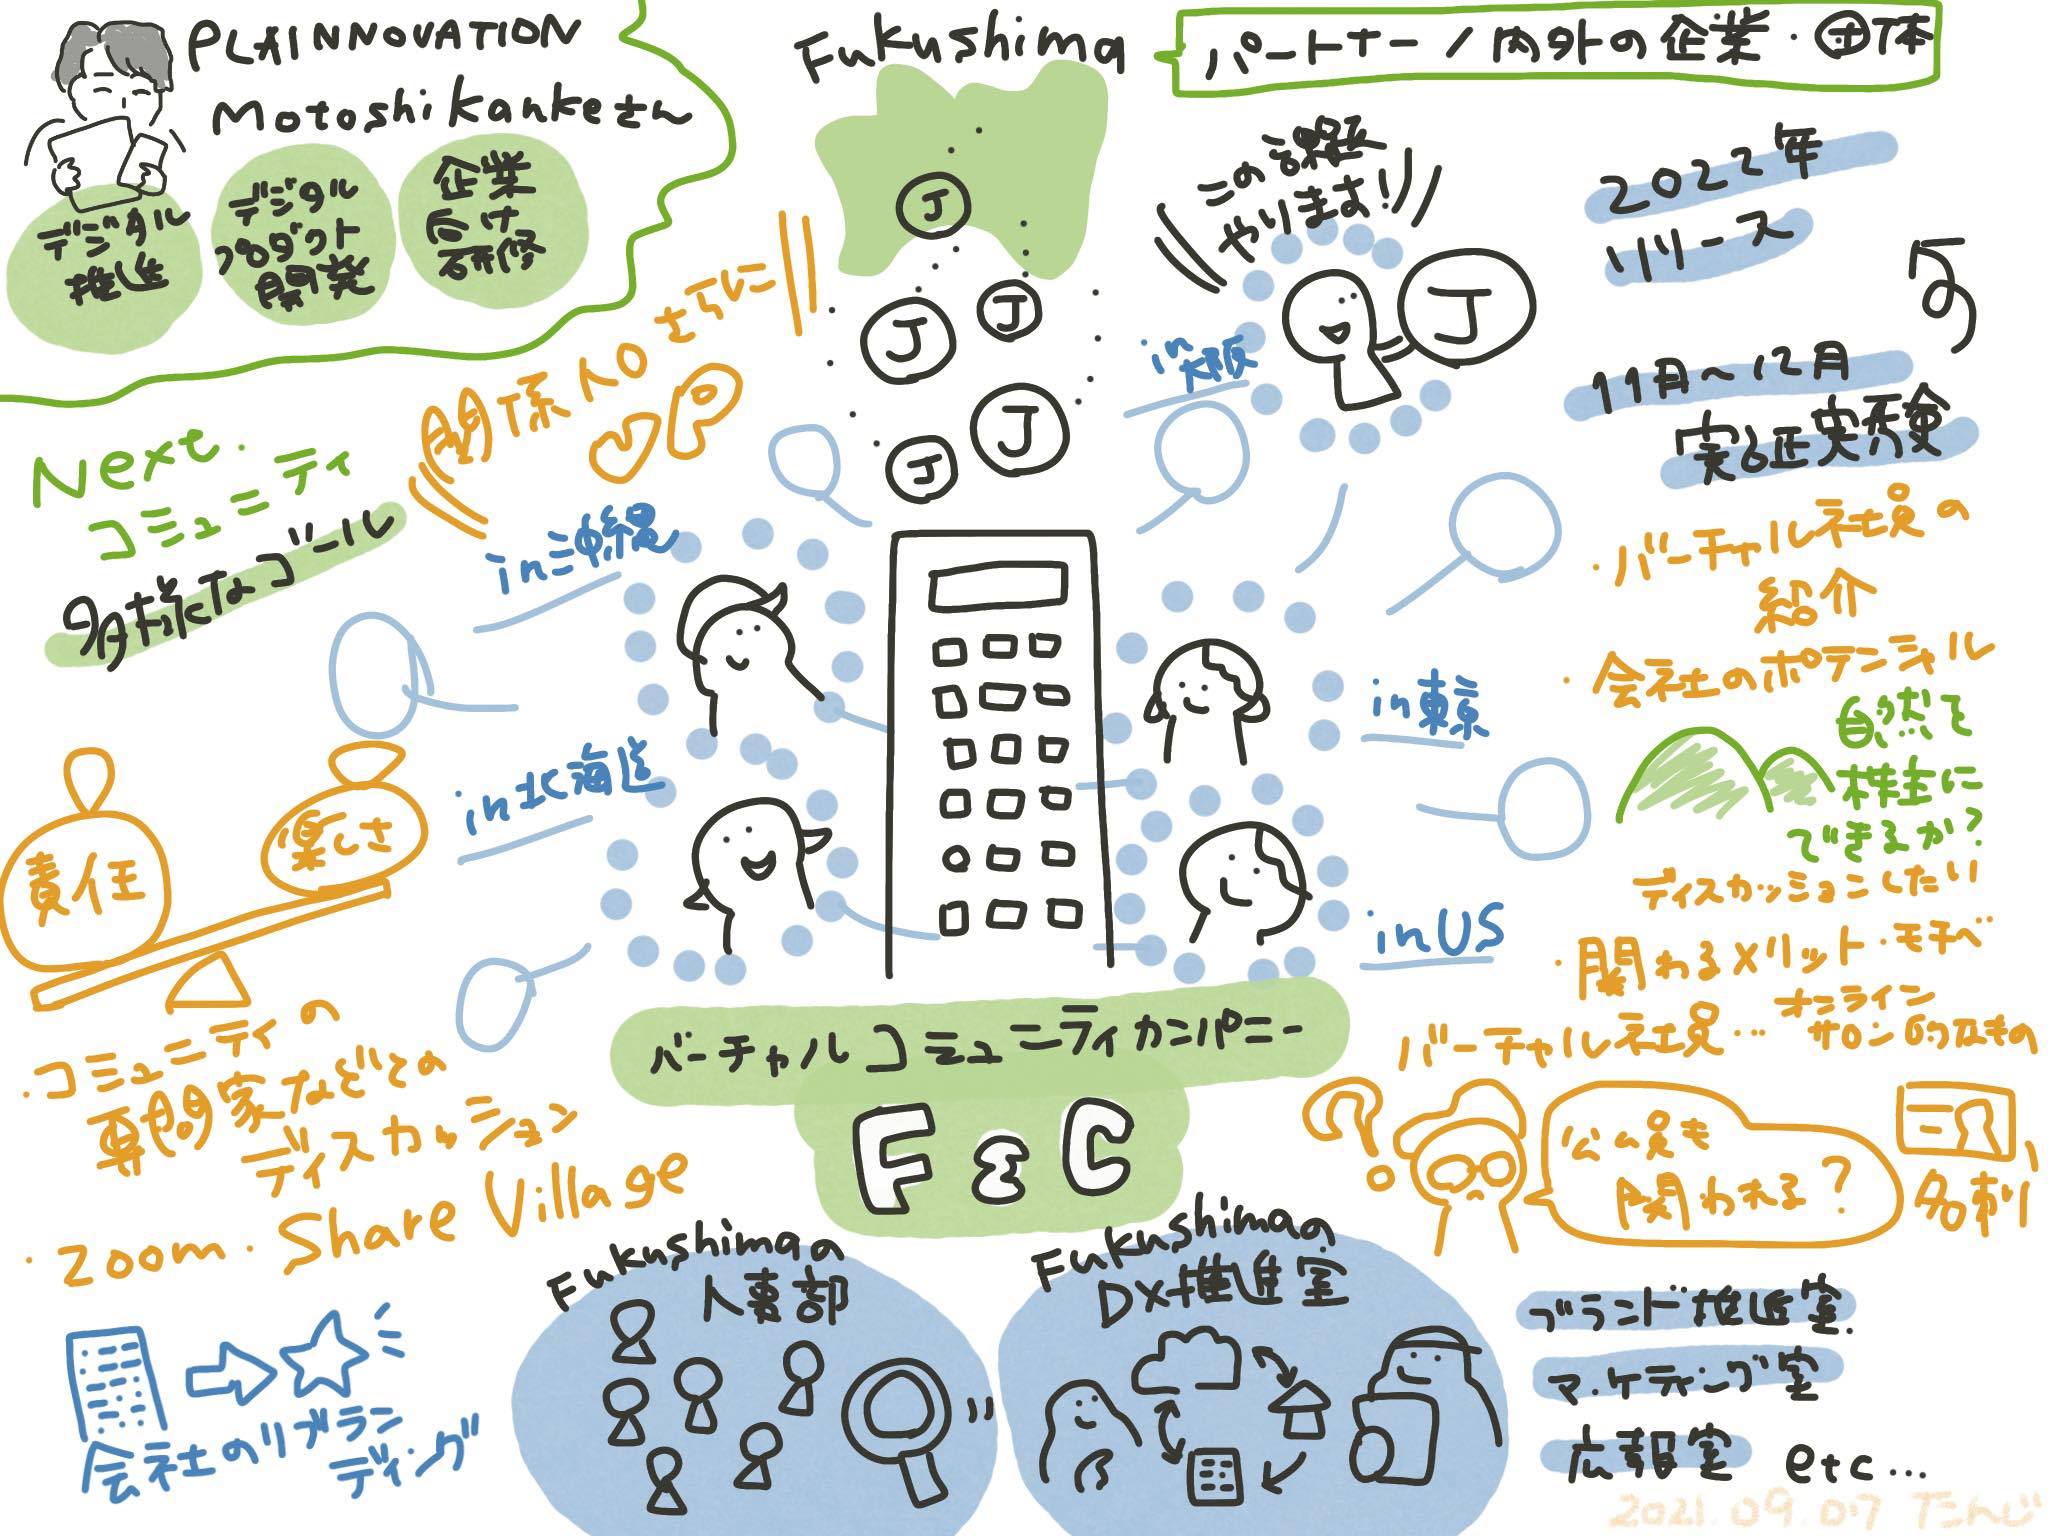 PLAINNOVATION
Motoshi Kankeさん
デジタル
推進
デジタル
プロダクト
開発
企業
向け
研修
Fukushima
パートナー/内外の企業・団体
J
J
J
J
J
この課題
やります!
J
2022年
リリース
11月~12月
実証実験
Next.
コミュニティ
多様なゴール
関係人口 さらに
UP
in沖縄
in北海道
in大阪
in東京
inUS
責任
楽しさ
・コミュニティの
専門家などとの
ディスカッション
・ZOOM・Share Village
会社のリブラン
ディング
バーチャルコミュニティカンパニー
F&C
Fukushimaの
人事部
Fukushimaの
DX推進室
・バーチャル社員の
紹介
・会社のポテンシャル
自然を
株主に
できるか?
ディスカッションしたい
・関わるメリット・モチベ
バーチャル社員…オンライン
サロン的なもの
?
公ム員も
関われる?
名刺
ブランド推進室
マーケティング室
広報室 etc…
2021.09.07 たんじ